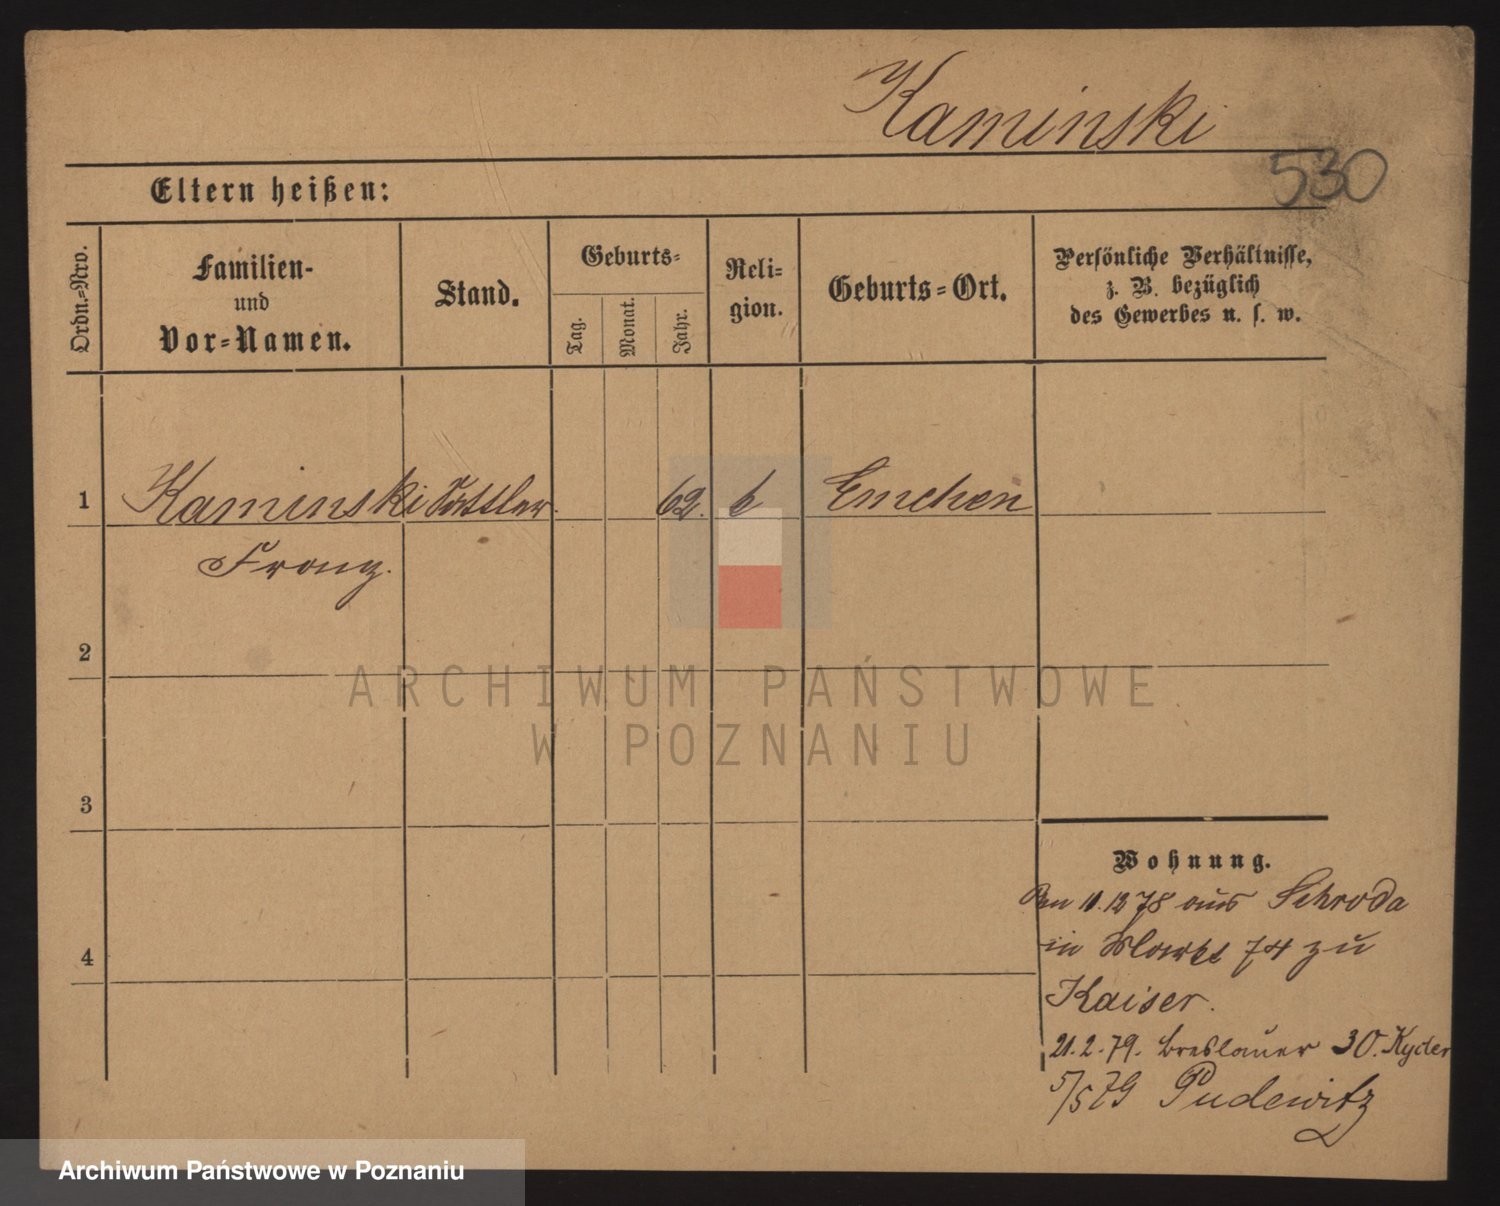 Kaminski
530
Eltern heißen:
Ordn.=Nro.
Familien-
und
Vor=Namen.
Stand.
Geburts=
Tag.
Monat.
Jahr.
Reli=
gion.
Geburts=Ort.
Persönliche Verhältnisse,
z. B. bezüglich
des Gewerbes u. s. w.
1
Kaminski Sattler. 62. k Emchen
Franz.
2
3
4
Wohnung.
Den 11.12 78 aus Schroda
in Markt 74 zu
Kaiser.
21.2.79. Breslauer 30. Kyder
5/5 79 Pudewitz
ARCHIWUM PAŃSTWOWE
W POZNANIU
Archiwum Państwowe w Poznaniu